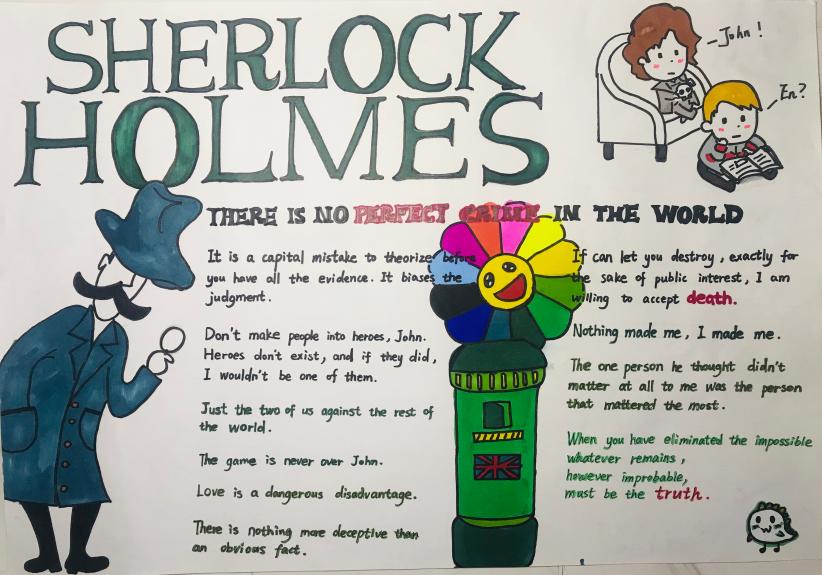 SHERLOCK
HOLMES
John!
En?
THERE IS NO PERFECT CRIME IN THE WORLD
It is a capital mistake to theorize before
you have all the evidence. It biases the
judgment.
Don't make people into heroes, John.
Heroes don't exist, and if they did,
I wouldn't be one of them.
Just the two of us against the rest of
the world.
The game is never over John.
Love is a dangerous disadvantage.
There is nothing more deceptive than
an obvious fact.
If can let you destroy, exactly for
the sake of public interest, I am
willing to accept death.
Nothing made me, I made me.
The one person he thought didn't
matter at all to me was the person
that mattered the most.
When you have eliminated the impossible
whatever remains,
however improbable,
must be the truth.